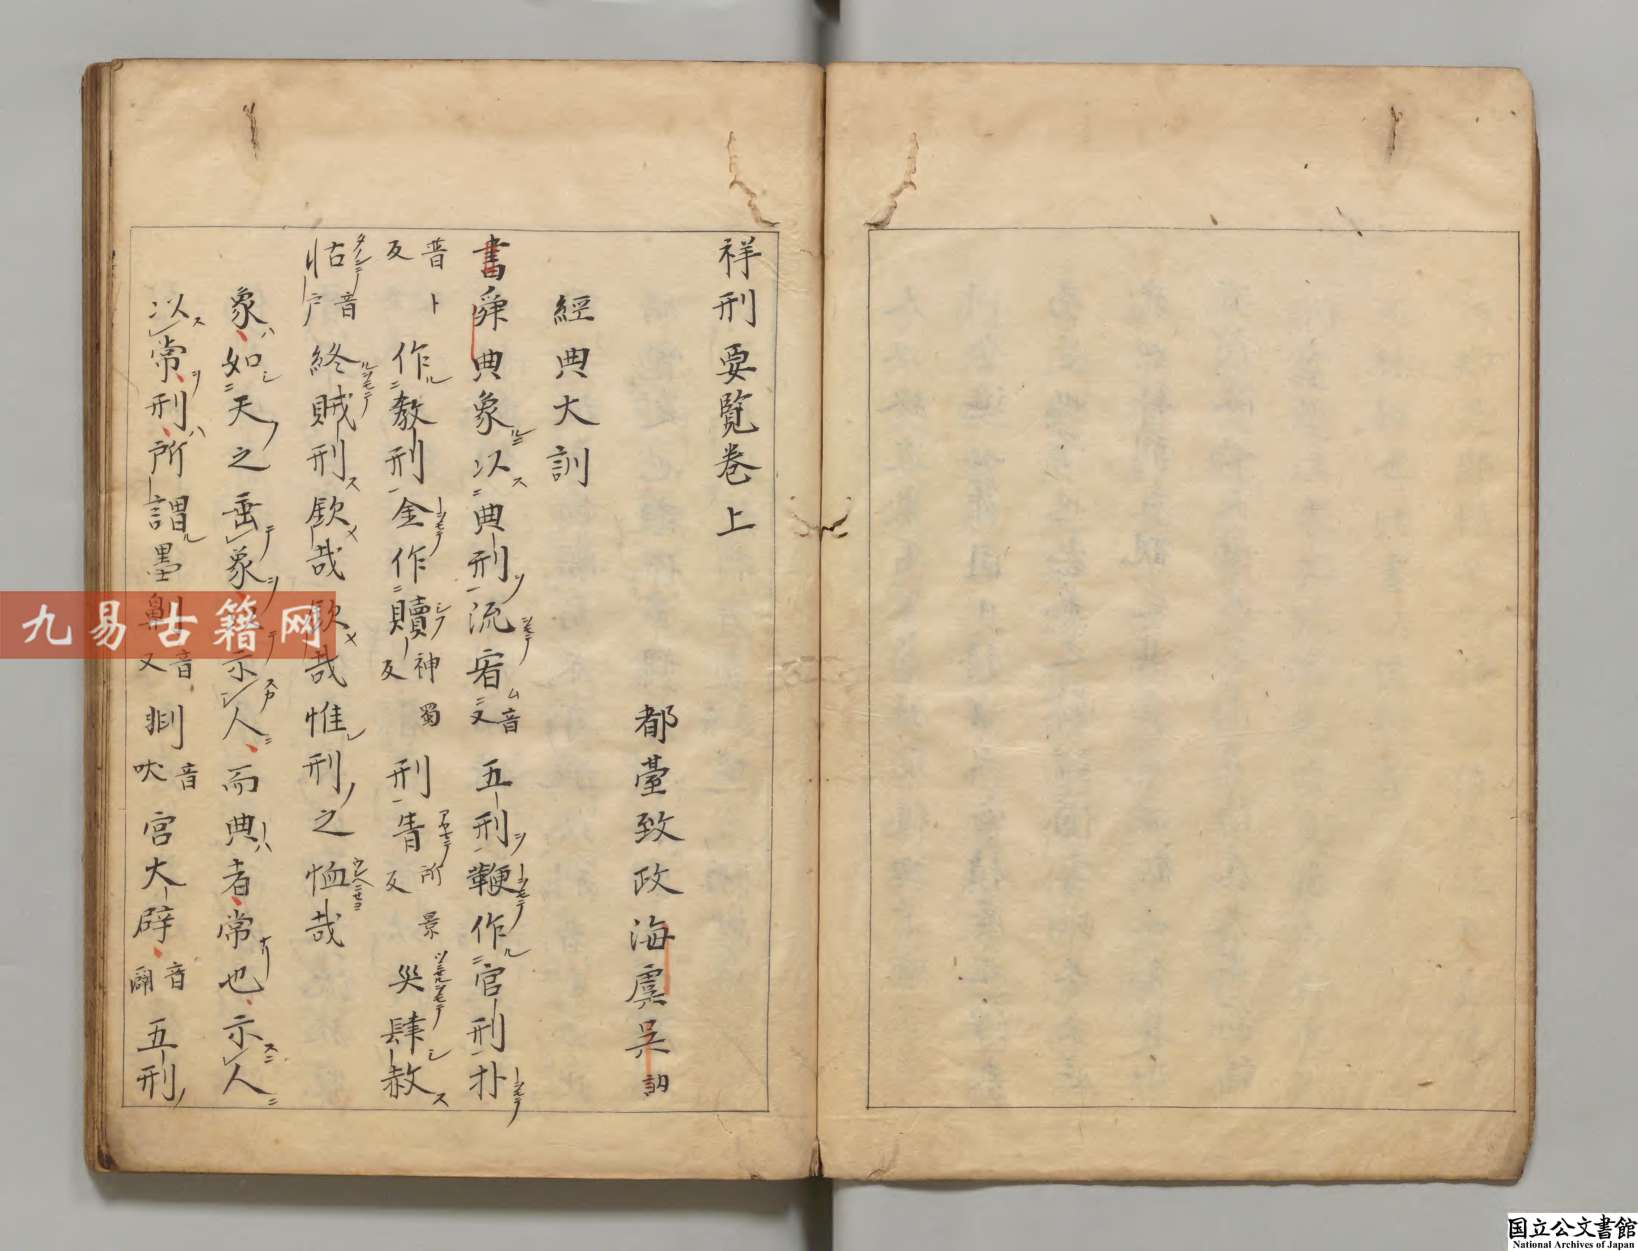 祥刑要覧巻上
都臺致政海虞呉訥
經典大訓
書舜典象以典刑流宥音又五刑鞭作官刑扑
普卜反作教刑金作贖神蜀反刑眚所景反災肆赦
怙音戸終賊刑欽哉欽哉惟刑之恤哉
象如天之垂象示人而典者常也示人
以常刑所謂墨劓音又剕音吠宮大辟音闢五刑
九易古籍网
国立公文書館
National Archives of Japan